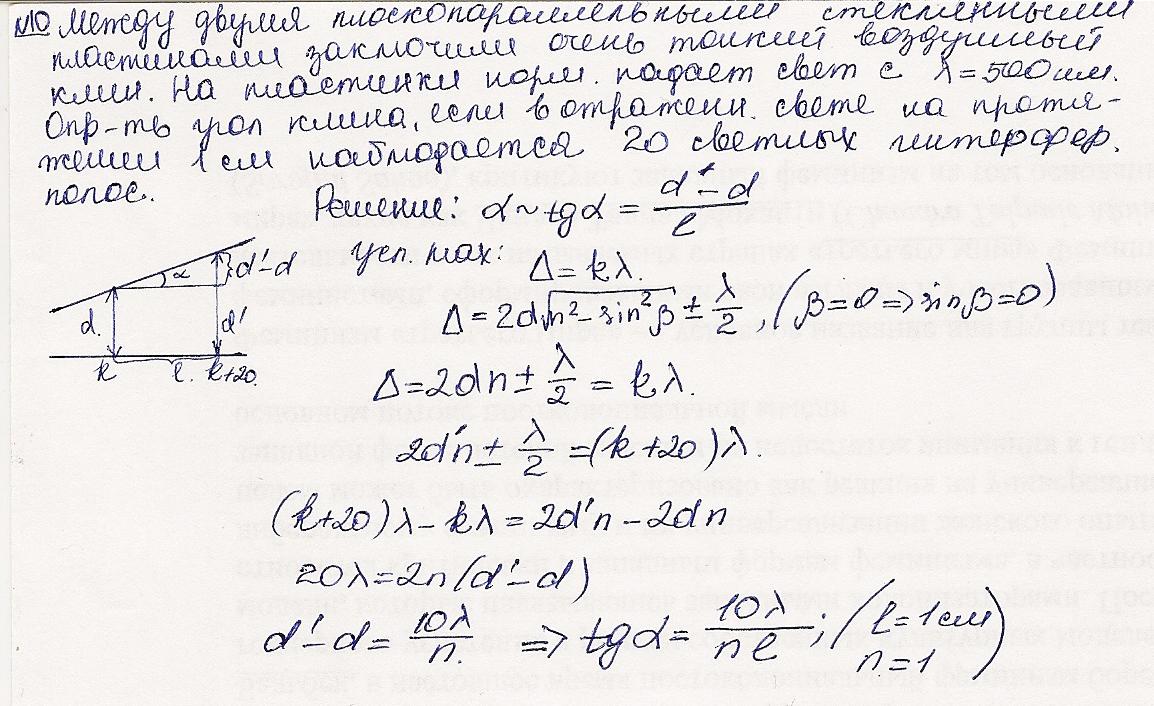 №10 Между двумя плоскопараллельными стеклянными
пластинами заключили очень тонкий воздушный
клин. На пластинки норм. падает свет с λ=500нм.
Опр-ть угол клина, если в отражени. свете на протя-
жении 1 см наблюдается 20 светлых интерфер.
полос.
Решение: α ~ tgα = (d'-d)/l
Усл. max:
Δ = kλ.
Δ = 2d√(n²-sin²β) ± λ/2, (β=0 => sinβ=0)
α d'-d
d d'
k l. k+20.
Δ = 2dn ± λ/2 = kλ.
2d'n ± λ/2 = (k+20)λ.
(k+20)λ - kλ = 2d'n - 2dn
20λ = 2n(d'-d)
d'-d = 10λ/n. => tgα = 10λ/(nl); (l=1см
n=1)